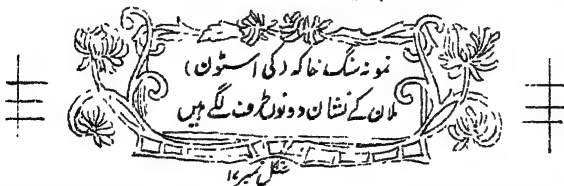 نمونہ سنگ خاکہ (کی اسٹون)
ملان کے نشان دونوں طرف لگے ہیں
شکل نمبر ۱۷